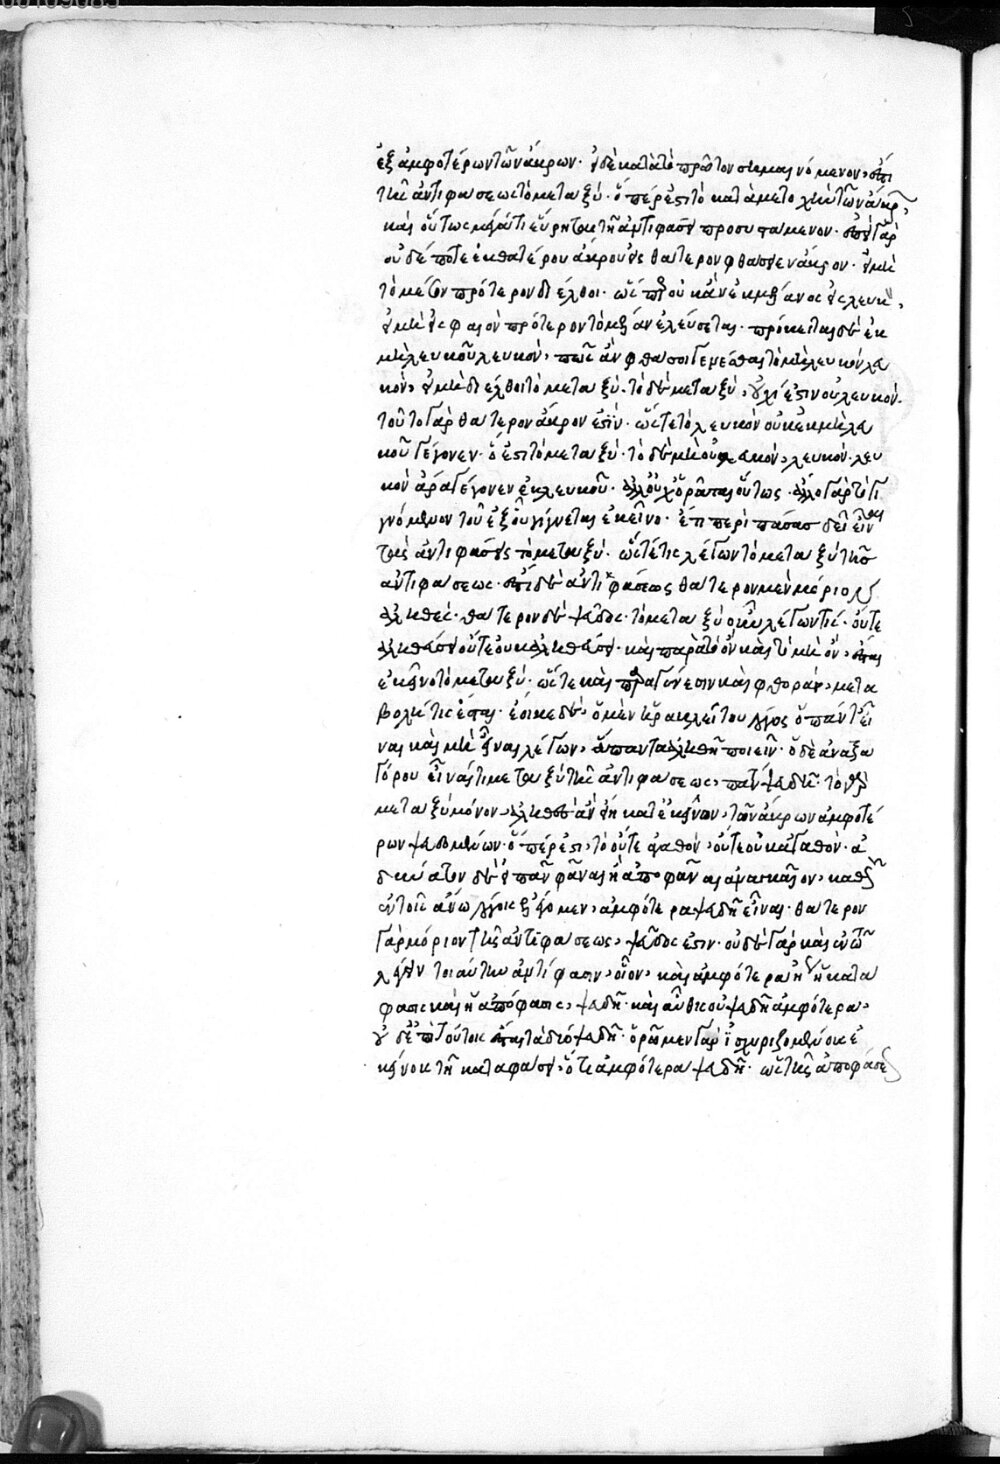 ἐξ ἀμφοτέρων τῶν ἄκρων· εἰ δὲ κατὰ τὸ πρῶτον σημαινόμενον, ἐπὶ
τῆς ἀντιφάσεως τὸ μεταξύ· ὅπερ ἐστὶ τὸ κατὰ μετοχὴν τῶν ἄκρων,
καὶ οὕτως μεταξύ τι εὕρηται τῇ ἀντιφάσει προσυπακουόμενον· ἐπεὶ γὰρ
οὐδέποτε ἐκ θατέρου ἄκρου εἰς θάτερον φθάσειεν ἄκρον· εἰ μὴ
τὸ μεταξὺ πρότερον διέλθοι· ὥσπερ οὐκ ἂν ἐκ μέλανος εἰς λευκὴν,
εἰ μὴ εἰς φαιὸν πρότερον τὸ μέλαν ἐλεύσεται· πρόκειται δὲ ἐκ
μὴ λευκοῦ λευκὸν, πῶς ἂν φθάσοι γενέσθαι τὸ μὴ λευκὸν λευ
κὸν, εἰ μὴ διέλθοι τὸ μεταξύ· τὸ δὲ μεταξὺ, οὐχί ἐστιν οὐ λευκόν·
τοῦτο γὰρ θάτερον ἄκρον ἐστίν· ὥστε τὸ λευκὸν οὐκ ἐκ μὴ λευ
κοῦ γέγονεν· ὅ ἐστι τὸ μεταξύ· τὸ δὲ μὴ οὐ λευκὸν, λευκόν· λευ
κὸν ἄρα γέγονεν ἐκ λευκοῦ· ἀλλ' οὐχ ὁρᾶται οὕτως· ἄλλο γὰρ τὸ γι
γνόμενον τοῦ ἐξ οὗ γίγνεται ἐκεῖνο· ἔτι περὶ πάσας δεῖ εἶναι
τὰς ἀντιφάσεις τὸ μεταξύ· ὥστε τις λέγων τὸ μεταξὺ τῆς
ἀντιφάσεως· ἐπεὶ δὲ ἀντιφάσεως θάτερον μὲν μόριον
ἀληθές· θάτερον δὲ ψεῦδος· τὸ μεταξὺ οὖν λέγων τις· οὔτε
ἀληθεύσει οὔτε οὐκ ἀληθεύσει· καὶ παρὰ τὸ ὂν καὶ τὸ μὴ ὂν, ἔσται
ἐκεῖνο τὸ μεταξύ· ὥστε καὶ παρὰ γένεσιν καὶ φθορὰν, μετα
βολή τις ἔσται· ἔοικε δὲ, ὁ μὲν ἡρακλείτου λόγος ὁ πάντα εἶ
ναι καὶ μὴ εἶναι λέγων, ἅπαντα ἀληθῆ ποιεῖν· ὁ δὲ ἀναξα
γόρου εἶναί τι μεταξὺ τῆς ἀντιφάσεως, πάντα ψευδῆ· τὸ γὰρ
μεταξὺ μόνον, ἀληθὲς ἂν εἴη κατ' ἐκεῖνον, τῶν ἄκρων ἀμφοτέ
ρων ψευδομένων· ὅπερ ἐστὶ, τὸ οὔτε ἀγαθὸν, οὔτε οὐκ ἀγαθόν· ἀ
δύνατον δὲ εἰ πᾶν φάναι ἢ ἀποφάναι ἀναγκαῖον, καθὼς
ἐν τοῖς ἄνω λόγοις ἐλέγομεν, ἀμφότερα ψευδῆ εἶναι· θάτερον
γὰρ μόριον τῆς ἀντιφάσεως, ψεῦδός ἐστιν· οὐδὲ γὰρ καὶ ἐν τῷ
λέγειν τοιαύτην ἀντίφασιν, οἷον, καὶ ἀμφότερα ἢ ἡ κατά
φασις καὶ ἡ ἀπόφασις, ψευδῆ· καὶ αὖθις οὐ ψευδῆ ἀμφότερα,
οὐδ' ἐπὶ τούτοις ἔσται τὰ δύο ψευδῆ· ὁρῶμεν γὰρ ἰσχυριζομένους ἐ
κείνοις τῇ καταφάσει, ὅτι ἀμφότερα ψευδῆ· ὥστε τῆς ἀποφάσεως